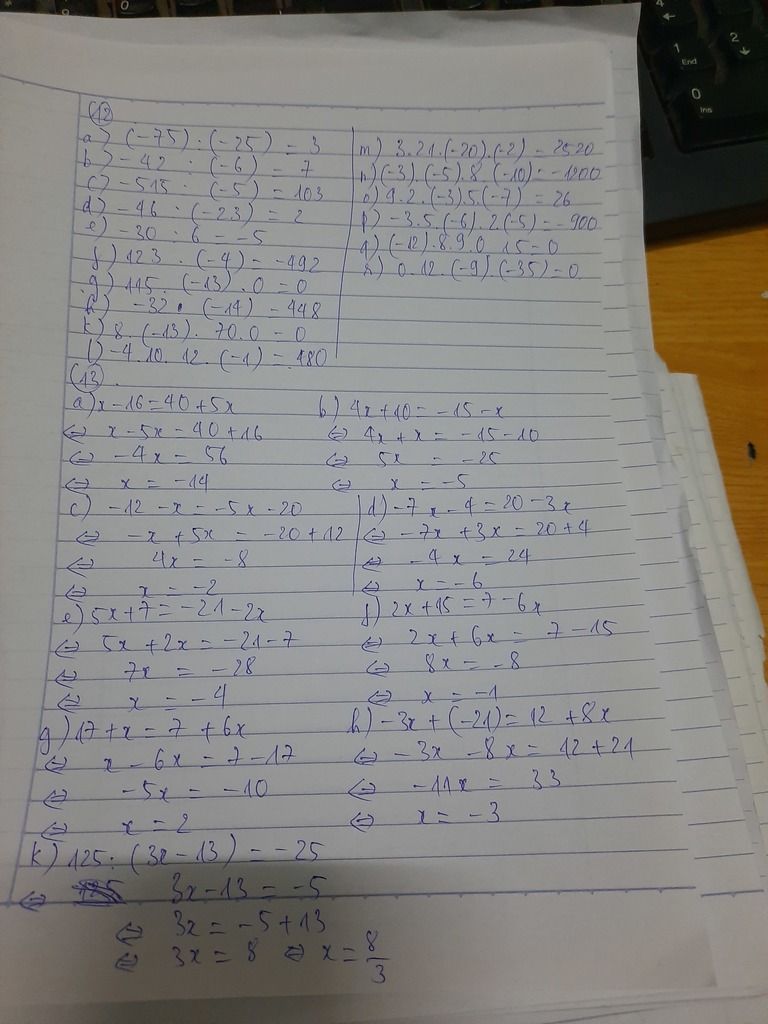 (12)
a) (-75) : (-25) = 3
b) -42 : (-6) = 7
c) -515 : (-5) = 103
d) -46 : (-23) = 2
e) -30 : 6 = -5
f) 123 . (-4) = -492
g) 115 . (-13) . 0 = 0
h) -32 . (-14) = 448
k) 8 . (-13) . 70 . 0 = 0
l) -4 . 10 . 12 . (-1) = 480
m) 3.21.(-20).(-2) = 2520
n) (-3).(-5).8.(-10) = -1200
p) -3.5.(-6).2.(-5) = -900
q) (-12).8.9.0.15 = 0
0.12.(-9).(-35) = 0
(13)
a) x-16 = 40+5x
⇔ x-5x = 40+16
⇔ -4x = 56
⇔ x = -14
b) 4x+10 = -15-x
⇔ 4x+x = -15-10
⇔ 5x = -25
⇔ x = -5
c) -12-x = -5x-20
⇔ -x+5x = -20+12
⇔ 4x = -8
⇔ x = -2
d) -7x-4 = 20-3x
⇔ -7x+3x = 20+4
⇔ -4x = 24
⇔ x = -6
e) 5x+7 = -21-2x
⇔ 5x+2x = -21-7
⇔ 7x = -28
⇔ x = -4
f) 2x+15 = 7-6x
⇔ 2x+6x = 7-15
⇔ 8x = -8
⇔ x = -1
g) 17+x = 7+6x
⇔ x-6x = 7-17
⇔ -5x = -10
⇔ x = 2
h) -3x+(-21) = 12+8x
⇔ -3x-8x = 12+21
⇔ -11x = 33
⇔ x = -3
k) 125 : (3x-13) = -25
⇔ 3x-13 = -5
⇔ 3x = -5+13
⇔ 3x = 8 ⇔ x = 8/3
4
1
End
2
0
Ins